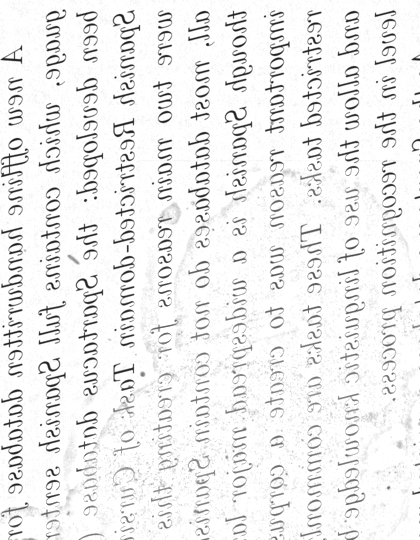 A new offline handwritten database for
guage, which contains full Spanish senten
been developed: the Spartacus database (
Spanish Restricted-domain Task of Cursi
were two main reasons for creating this
all, most databases do not contain Spanis
though Spanish is a widespread major la
important reason was to create a corpus
restricted tasks. These tasks are commonly
and allow the use of linguistic knowledge b
level in the recognition process.